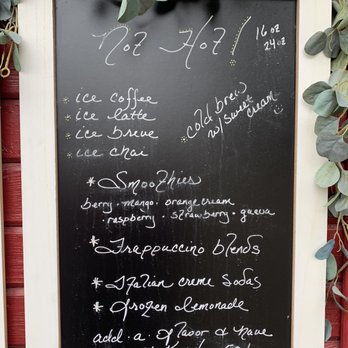 Not Hot!
16 oz
24 oz
ice coffee
ice latte
ice breve
ice chai
cold brew
w/sweet
cream
*Smoothies
berry · mango · orange cream
· raspberry · strawberry · guava
*Frappuccino blends
*Italian creme sodas
*frozen lemonade
add · a · flavor & have